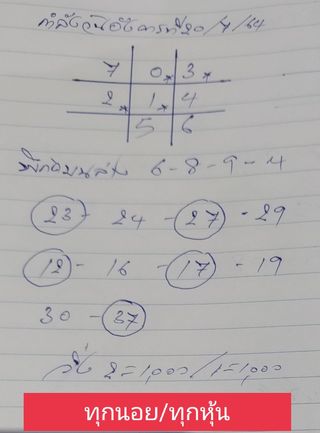 กำลังวันอังคารที่20/4/64
7 0* 3*
2* 1* 4
5 6
6-8-9-4
23- 24 - 27 - 29
12 - 16 - 17 - 19
30 - 37
วิ่ง 2=1,000/1=1,000
ทุกนอย/ทุกหุ้น